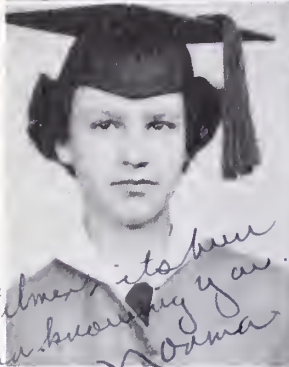 Elmer, its been
fun knowing you.
Norma